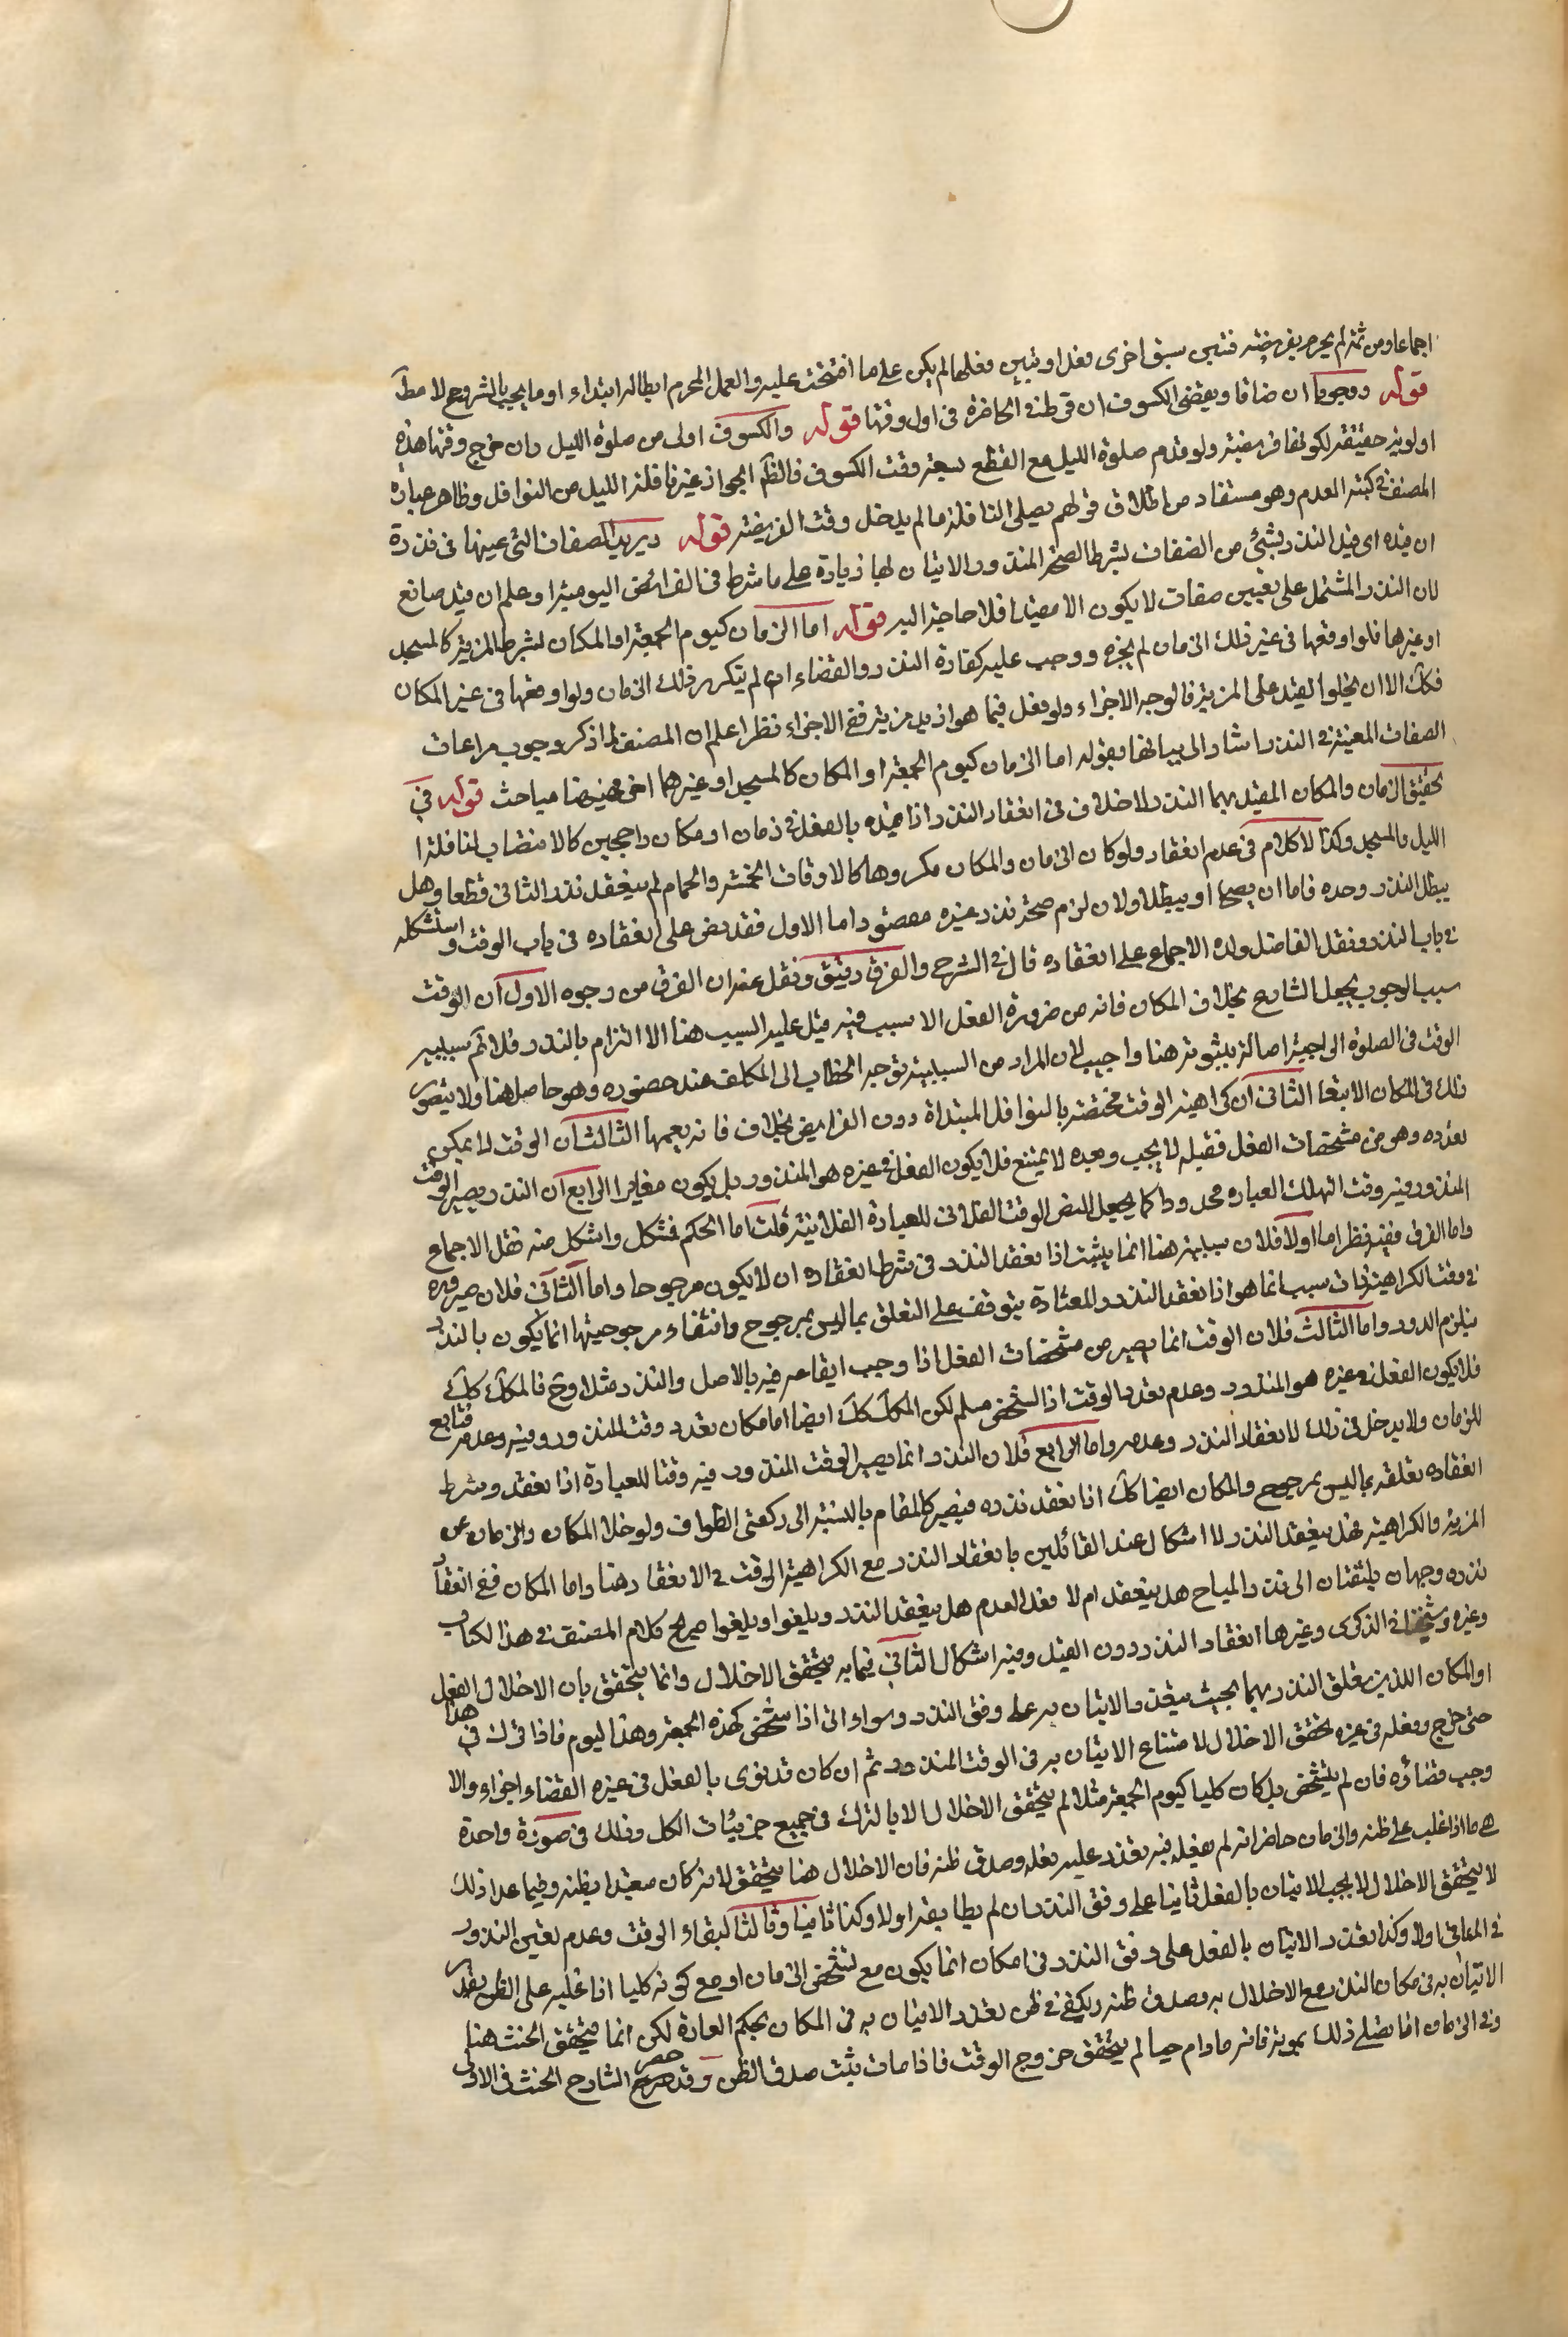 اجماعا ومن ثمة لم يحرم بفريضة فتبين سبق اخرى فعدل او تبين فعلها لم يكن على ما افتتحت عليه والعمل المحرم ابطاله ابتداء او ما يجب بالشروع لا مطلقا
قوله ووجوبا ان ضاقا ويقضى الكسوف ان فرط في الحاضرة في اول وقتها قوله والكسوف اولى من صلوة الليل وان خرج وقتها هذه
اولوية حقيقة لكونها فريضة ولو قدم صلوة الليل مع القطع بسعة وقت الكسوف فالظ الجواز غير نافلة الليل من النوافل وظاهر عبارة
المصنف في كتبه العدم وهو مستفاد من اطلاق قولهم يصلى النافلة ما لم يدخل وقت الفريضة قوله ويريد الصفات التي عينها في نذره
ان قيده اى قيد النذر بشئ من الصفات بشرط الصحة المنذور والاتيان لها زيادة على ما شرط في الفرائض اليومية اوعلم ان قيد صانع
لان النذر المشتمل على تعيين صفات لا يكون الا مقيدا فلا حاجة اليه قوله اما الزمان كيوم الجمعة او المكان بشرط المزية كالمسجد
او غيرها فلو اوقعها في غير ذلك الزمان لم يجزه ووجب عليه كفارة النذر والقضاء ان لم يتكرر ذلك الزمان ولو اوقعها في غير المكان
فكك الا ان يخلو القيد على المزية فالوجه الاجزاء ولو فعل فيما هو ازيد مزية ففي الاجزاء نظر اعلم ان المصنف لما ذكر وجوب مراعات
الصفات المعينة في النذر اشار الى بيانها بقوله اما الزمان كيوم الجمعة او المكان كالمسجد او غيرهما اخ فهيهنا مباحث قوله في
تحقيق الزمان والمكان المقيد بهما النذر لا خلاف في انعقاد النذر اذا قيده بالفعل في زمان او مكان راجحين كالانتصاب لنافلة
الليل والمسجد وكذا لا كلام في عدم انعقاد ولو كان الزمان والمكان مكروها كالاوقات الخمسة والحمام لم ينعقد نذر الثاني قطعا وهل
يبطل النذر وحده فاما ان يصحا او يبطلا ولان لزم صحة نذر غيره مقصود اما الاول فقد نص على انعقاده في باب الوقت واستشكله
في باب النذر ونقل الفاضل ولده الاجماع على انعقاده قال في الشرح والفرق دقيق ونقل عنه ان الفرق من وجوه الاول ان الوقت
سبب الوجوب بجعل الشارع بخلاف المكان فانه من ضرورة الفعل الا سبب فيه قيل عليه السبب هنا الا التزام بالنذر فلا تم سببية
الوقت في الصلوة الواجبة اصالة بثبوته هنا واجيب لان المراد من السببية توجه الخطاب الى المكلف عند حضوره وهو حاصل هنا ولا يتصور
ذلك في المكان الا تبعا الثاني ان كراهية الوقت مختصة بالنوافل المبتداة دون الفرايض بخلاف فانه يعمها الثالث ان الوقت لا يمكن
تعدده وهو من مشخصات الفعل فقبله لا يجب وبعده لا يمتنع فلا يكون الفعل في غيره هو المنذور بل يكون مغايرا الرابع ان النذر يصير الوقت
المنذور فيه وقتا لتلك العبادة محدودا كما يجعل النص الوقت الفلاني للعبادة الفلانية قلت اما الحكم فمشكل واشكل منه نقل الاجماع
واما الفرق ففيه نظر اما اولا فلان سببيته هنا انما يثبت اذا نعقد النذر في شرط انعقاده ان لا يكون مرجوحا واما الثاني فلان صيرورة
في وقت الكراهية ذات سبب انما هو اذا نعقد النذر والمعتادة يتوقف على التعلق بما ليس بمرجوح وانتفاء مرجوحيتها انما يكون بالنذر
فيلزم الدور واما الثالث فلان الوقت انما يصير من مشخصات الفعل اذا وجب ايقاعه فيه بالاصل والنذر مثلا وح فالمكان كك
فلا يكون الفعل في غيره هو المنذور وعدم تعدد الوقت اذا الشخص مسلم لكن المكان كك ايضا امامكان تعدد وقت المنذور وفيه وعدمه فتابع
للزمان ولا يدخل في ذلك لا نعقاد النذر وعدمه واما الرابع فلان النذر انما يصير الوقت المنذور فيه وقتا للعبادة اذا نعقد وشرط
انعقاده تعلقه بما ليس بمرجوح والمكان ايضا كك اذا نعقد نذره فيصير كالمقام بالنسبة الى ركعتي الطواف ولو خلا المكان والزمان عن
المزية والكراهية فهل ينعقد النذر لا اشكال عند القائلين بانعقاد النذر مع الكراهية الوقت في الانعقاد هنا واما المكان ففي انعقاد
نذره وجهان يلتفتان الى نذر المباح هل ينعقد ام لا فعلى العدم هل ينعقد النذر ويلغوا ويلغوا صريح كلام المصنف في هذا الكتاب
وغيره وشيخنا في الذكرى وغيرها انعقاد النذر دون القيد وفيه اشكال الثاني فيما به يتحقق الاخلال وانما يتحقق بان الاخلال الفعل
او المكان اللذين تعلق النذر بهما بحيث يتعذر الاتيان به على وفق النذر وسواء اذا شخص كهذه الجمعة وهذا اليوم فاذا ترك في هذا
حتى خرج وفعله في غيره تحقق الاخلال لامتناع الاتيان به في الوقت المنذور ثم ان كان قد نوى بالفعل في غيره القضاء اجزاء والا
وجب قضائره فان لم يتشخص بل كان كليا كيوم الجمعة مثلا لم يتحقق الاخلال الا بالترك في جميع جزئيات الكل وذلك في صورة واحدة
هى ما اذا غلب على ظنه والزمان حاضر انه لم يفعله فيه تعذر عليه فعله وصدق ظنه فان الاخلال هنا يتحقق لانه كان مقيدا بظنه وفيما عدا ذلك
لا يتحقق الاخلال لا يجب الاتيان بالفعل ثانيا على وفق النذر ان لم يطابقه اولا وكذا ثانيا وثالثا لبقاء الوقت وعدم تعين النذور
في المعاني اولا وكذا تعذر الاتيان بالفعل على وفق النذر في امكان انما يكون مع تشخص الزمان او مع كونه كليا اذا غلب على الظن تعذر
الاتيان به في مكان النذر مع الاخلال به وصدق ظنه ويكفي في ظن تعذر الاتيان به في المكان بحكم العادة لكن انما يتحقق الحنث هنا
وفي الزمان اذا تضلى ذلك بموته فانه ما دام حيا لم يتحقق خروج الوقت فاذا مات يثبت صدق الظن وقد حصر الشارح الحنث في الاول